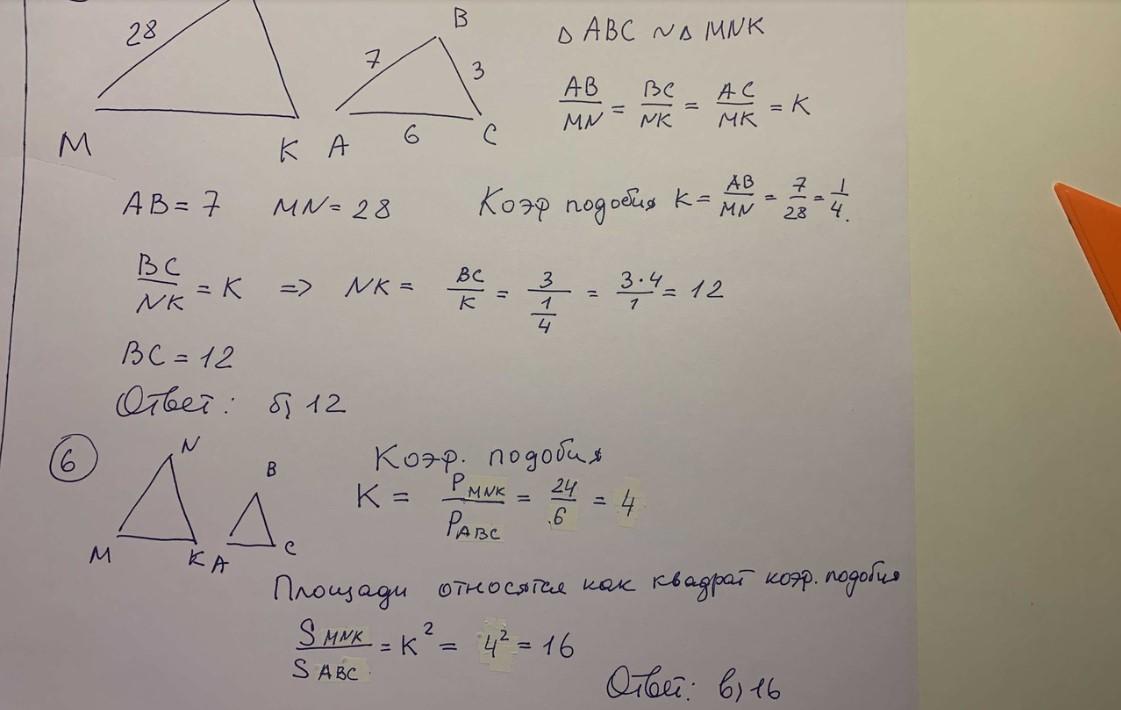 28
7
B
3
M
K
A
6
C
Δ ABC ∾ Δ MNK
AB/MN = BC/NK = AC/MK = K
AB = 7 MN = 28 Коэф подобия K = AB/MN = 7/28 = 1/4.
BC/NK = K => NK = BC/K = 3/(1/4) = 3·4/1 = 12
BC = 12
Ответ: б) 12
6
N
B
M
K
A
C
Коэф. подобия
K = P MNK / P ABC = 24/6 = 4
Площади относятся как квадрат коэф. подобия
S MNK / S ABC = K² = 4² = 16
Ответ: в) 16